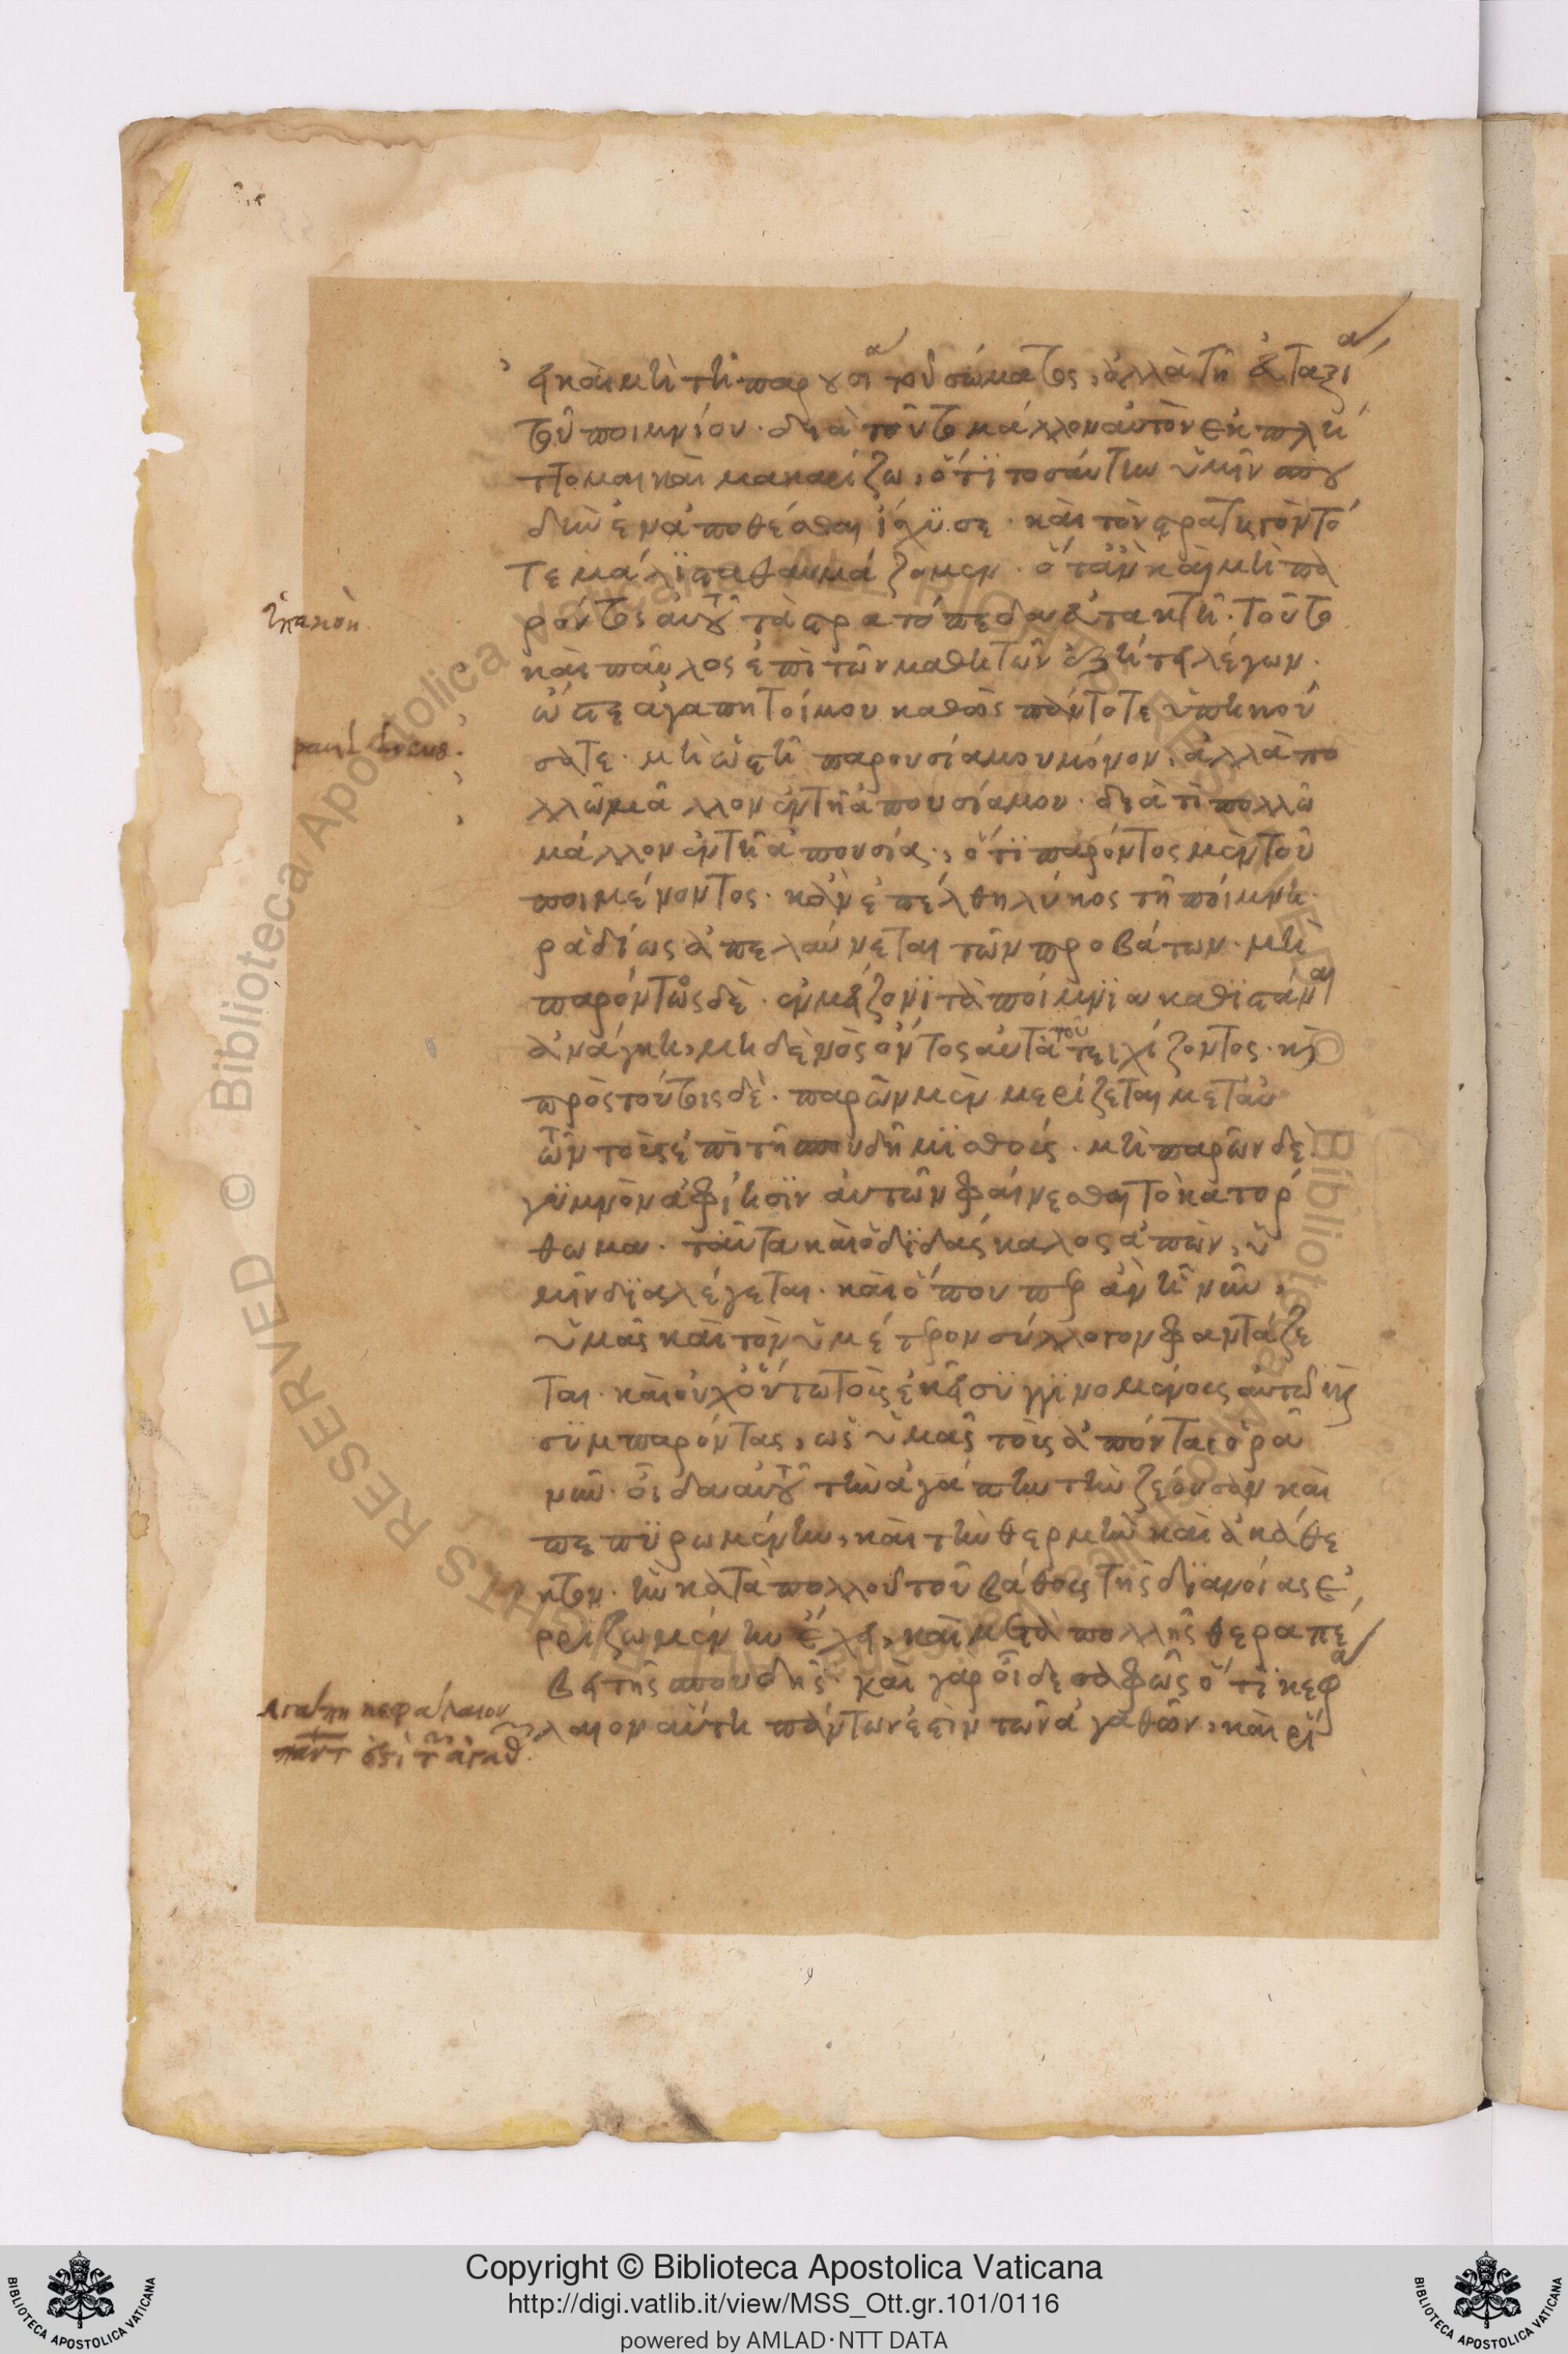 εἰ καὶ μὴ τῆ παρουσία τοῦ σώματος, ἀλλὰ τῆ εὐταξία
τοῦ ποιμνίου. διὰ τοῦτο μάλλον αὐτὸν ἐκπλή
ττομαι καὶ μακαρίζω, ὅτι τοσαύτην ὑμῖν σπου
δὴν ἐναποθέσθαι ἴσχυσε. καὶ τὸν στρατηγὸν τό
τε μάλιστα θαυμάζομεν. ὅταν καὶ μὴ πα
ρόντος αὐτοῦ τὰ στρατόπεδα εὐτακτῆ. τοῦτο
καὶ παῦλος ἐπὶ τῶν μαθητῶν ἐζήτει λέγων.
ὥστε ἀγαπητοί μου καθὼς πάντοτε ὑπηκού
σατε. μὴ ὡς ἐν τῆ παρουσία μου μόνον, ἀλλὰ πο
λλῶ μᾶλλον ἐν τῆ ἀπουσία μου. διὰ τί πολλῶ
μάλλον ἐν τῆ ἀπουσία, ὅτι παρόντος μὲν τοῦ
ποιμένοντος. κἂν ἐπέλθη λύκος τῆ ποίμνη.
ραδίως ἀπελαύνεται τῶν προβάτων. μὴ
παρόντος δὲ. ἐν μείζονι τὰ ποίμνια καθίσταναι
ἀνάγκη, μηδενὸς ὄντος αὐτὰ τοῦ τειχίζοντος. καὶ
πρὸς τούτοις δὲ. παρὼν μὲν μερίζεται μετ' αὐ
τῶν τοὺς ἐπὶ τῆ σπουδῆ μισθούς. μὴ παρὼν δὲ
γυμνὸν ἀφίησιν αὐτῶν φαίνεσθαι τὸ κατόρ
θωμα. ταῦτα καὶ ὁ διδάσκαλος ἀπὼν, ὑ
μῖν διαλέγεται. καὶ ὅπου περ ἂν ῆ νῦν,
ὑμᾶς καὶ τὸν ὑμέτερον σύλλογον φαντάζε
ται. καὶ οὐχ οὕτω τοὺς ἐκεῖ συγγινομένους αὐτῶ καὶ
συμπαρόντας, ὡς ὑμᾶς τοὺς ἀπόντας ὁρᾶ
νῦν. οἶδα αὐτοῦ τὴν ἀγάπην τὴν ζέουσαν καὶ
πεπυρωμένην, καὶ τὴν θερμὴν καὶ ἀκάθε
κτον. ἣν κατὰ πολλοῦ τοῦ βάθους τῆς διανοίας ἐ
ρριζωμένην ἔχει, καὶ μετὰ πολλῆς θεραπεύ
ει τῆς σπουδῆς. καὶ γὰρ οἶδε σαφῶς ὅτι κεφά
λαιον αὕτη πάντων ἐστὶν τῶν ἀγαθῶν, καὶ ρί
ἱκανόν
pauli locus.
Αγαπη κεφαλαιον
παντ ἐστὶ τ ἀγαθ.
Copyright © Biblioteca Apostolica Vaticana
http://digi.vatlib.it/view/MSS_Ott.gr.101/0116
powered by AMLAD·NTT DATA
BIBLIOTECA APOSTOLICA VATICANA
BIBLIOTECA APOSTOLICA VATICANA